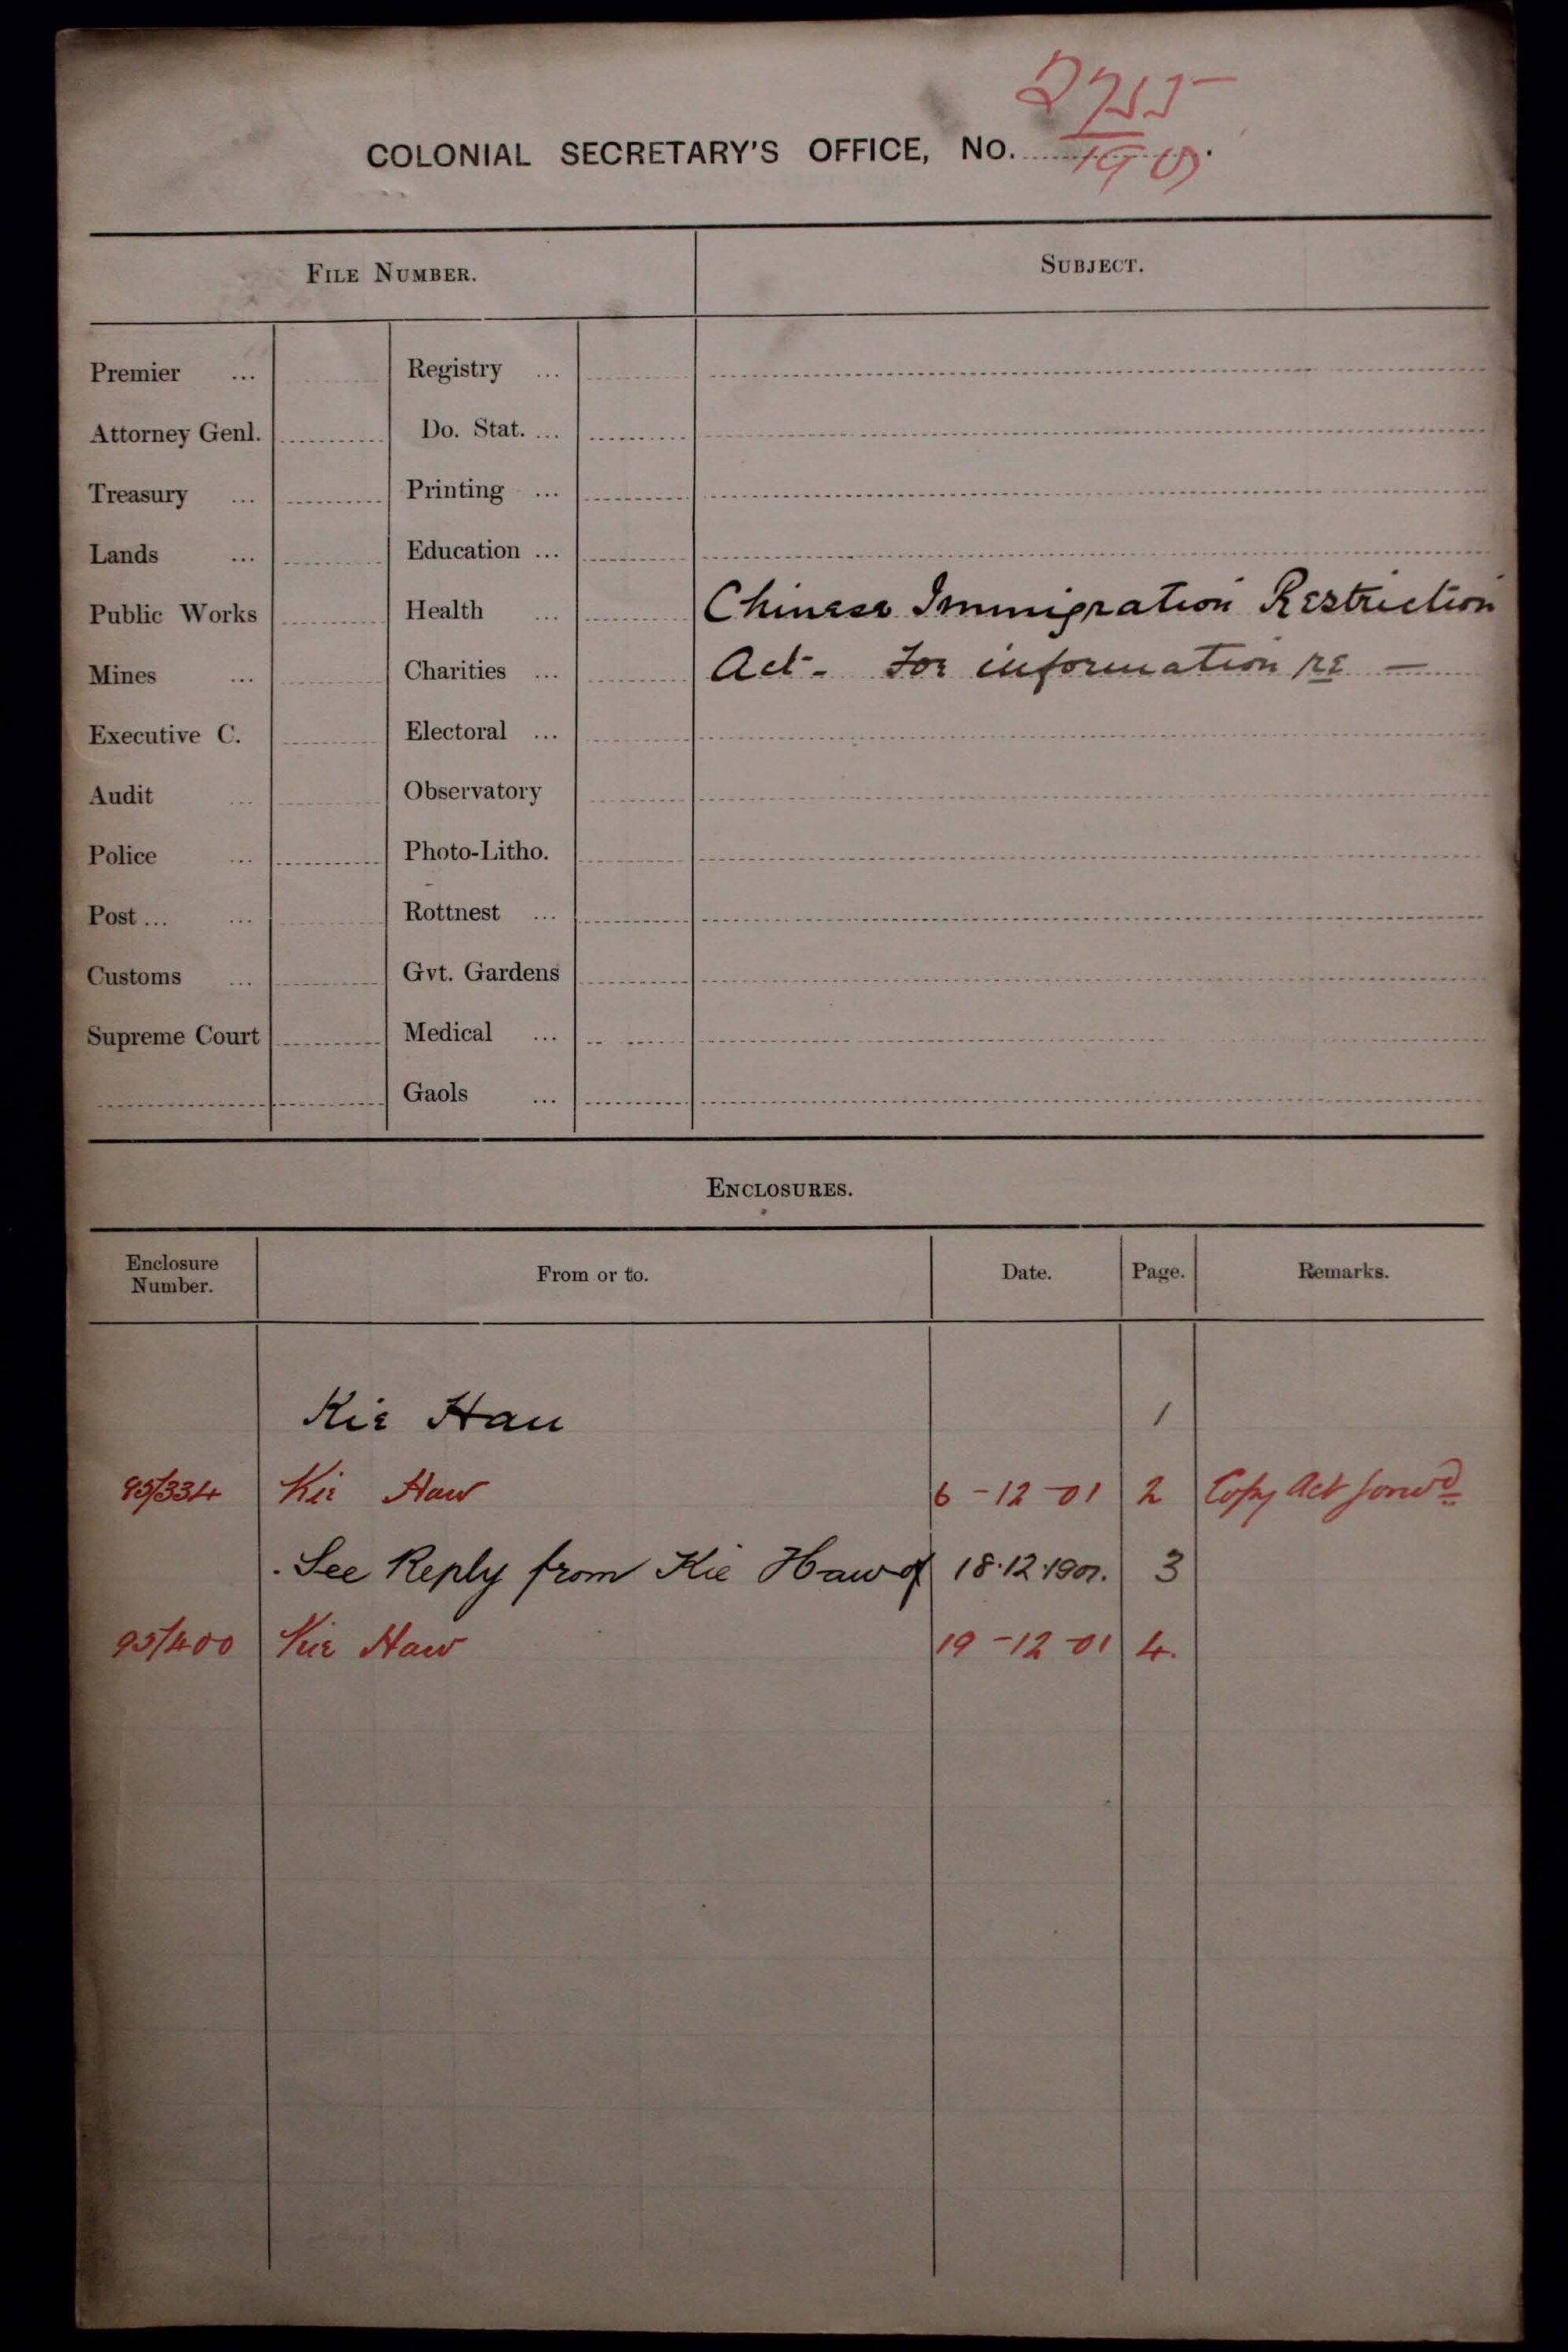 2755
COLONIAL SECRETARY'S OFFICE, No. 1901.
FILE NUMBER. SUBJECT.
Premier ... Registry ...
Attorney Genl. Do. Stat. ...
Treasury ... Printing ...
Lands ... Education ...
Public Works Health ... Chinese Immigration Restriction
Mines ... Charities ... Act - For information re —
Executive C. Electoral ...
Audit ... Observatory
Police ... Photo-Litho.
Post ... ... Rottnest ...
Customs ... Gvt. Gardens
Supreme Court Medical ...
Gaols ...
ENCLOSURES.
Enclosure Number. From or to. Date. Page. Remarks.
Kie Hau 1
95/334 Kie Haw 6-12-01 2 Copy Act forwd
See Reply from Kie Haw of 18.12.1901. 3
95/400 Kie Haw 19-12-01 4.